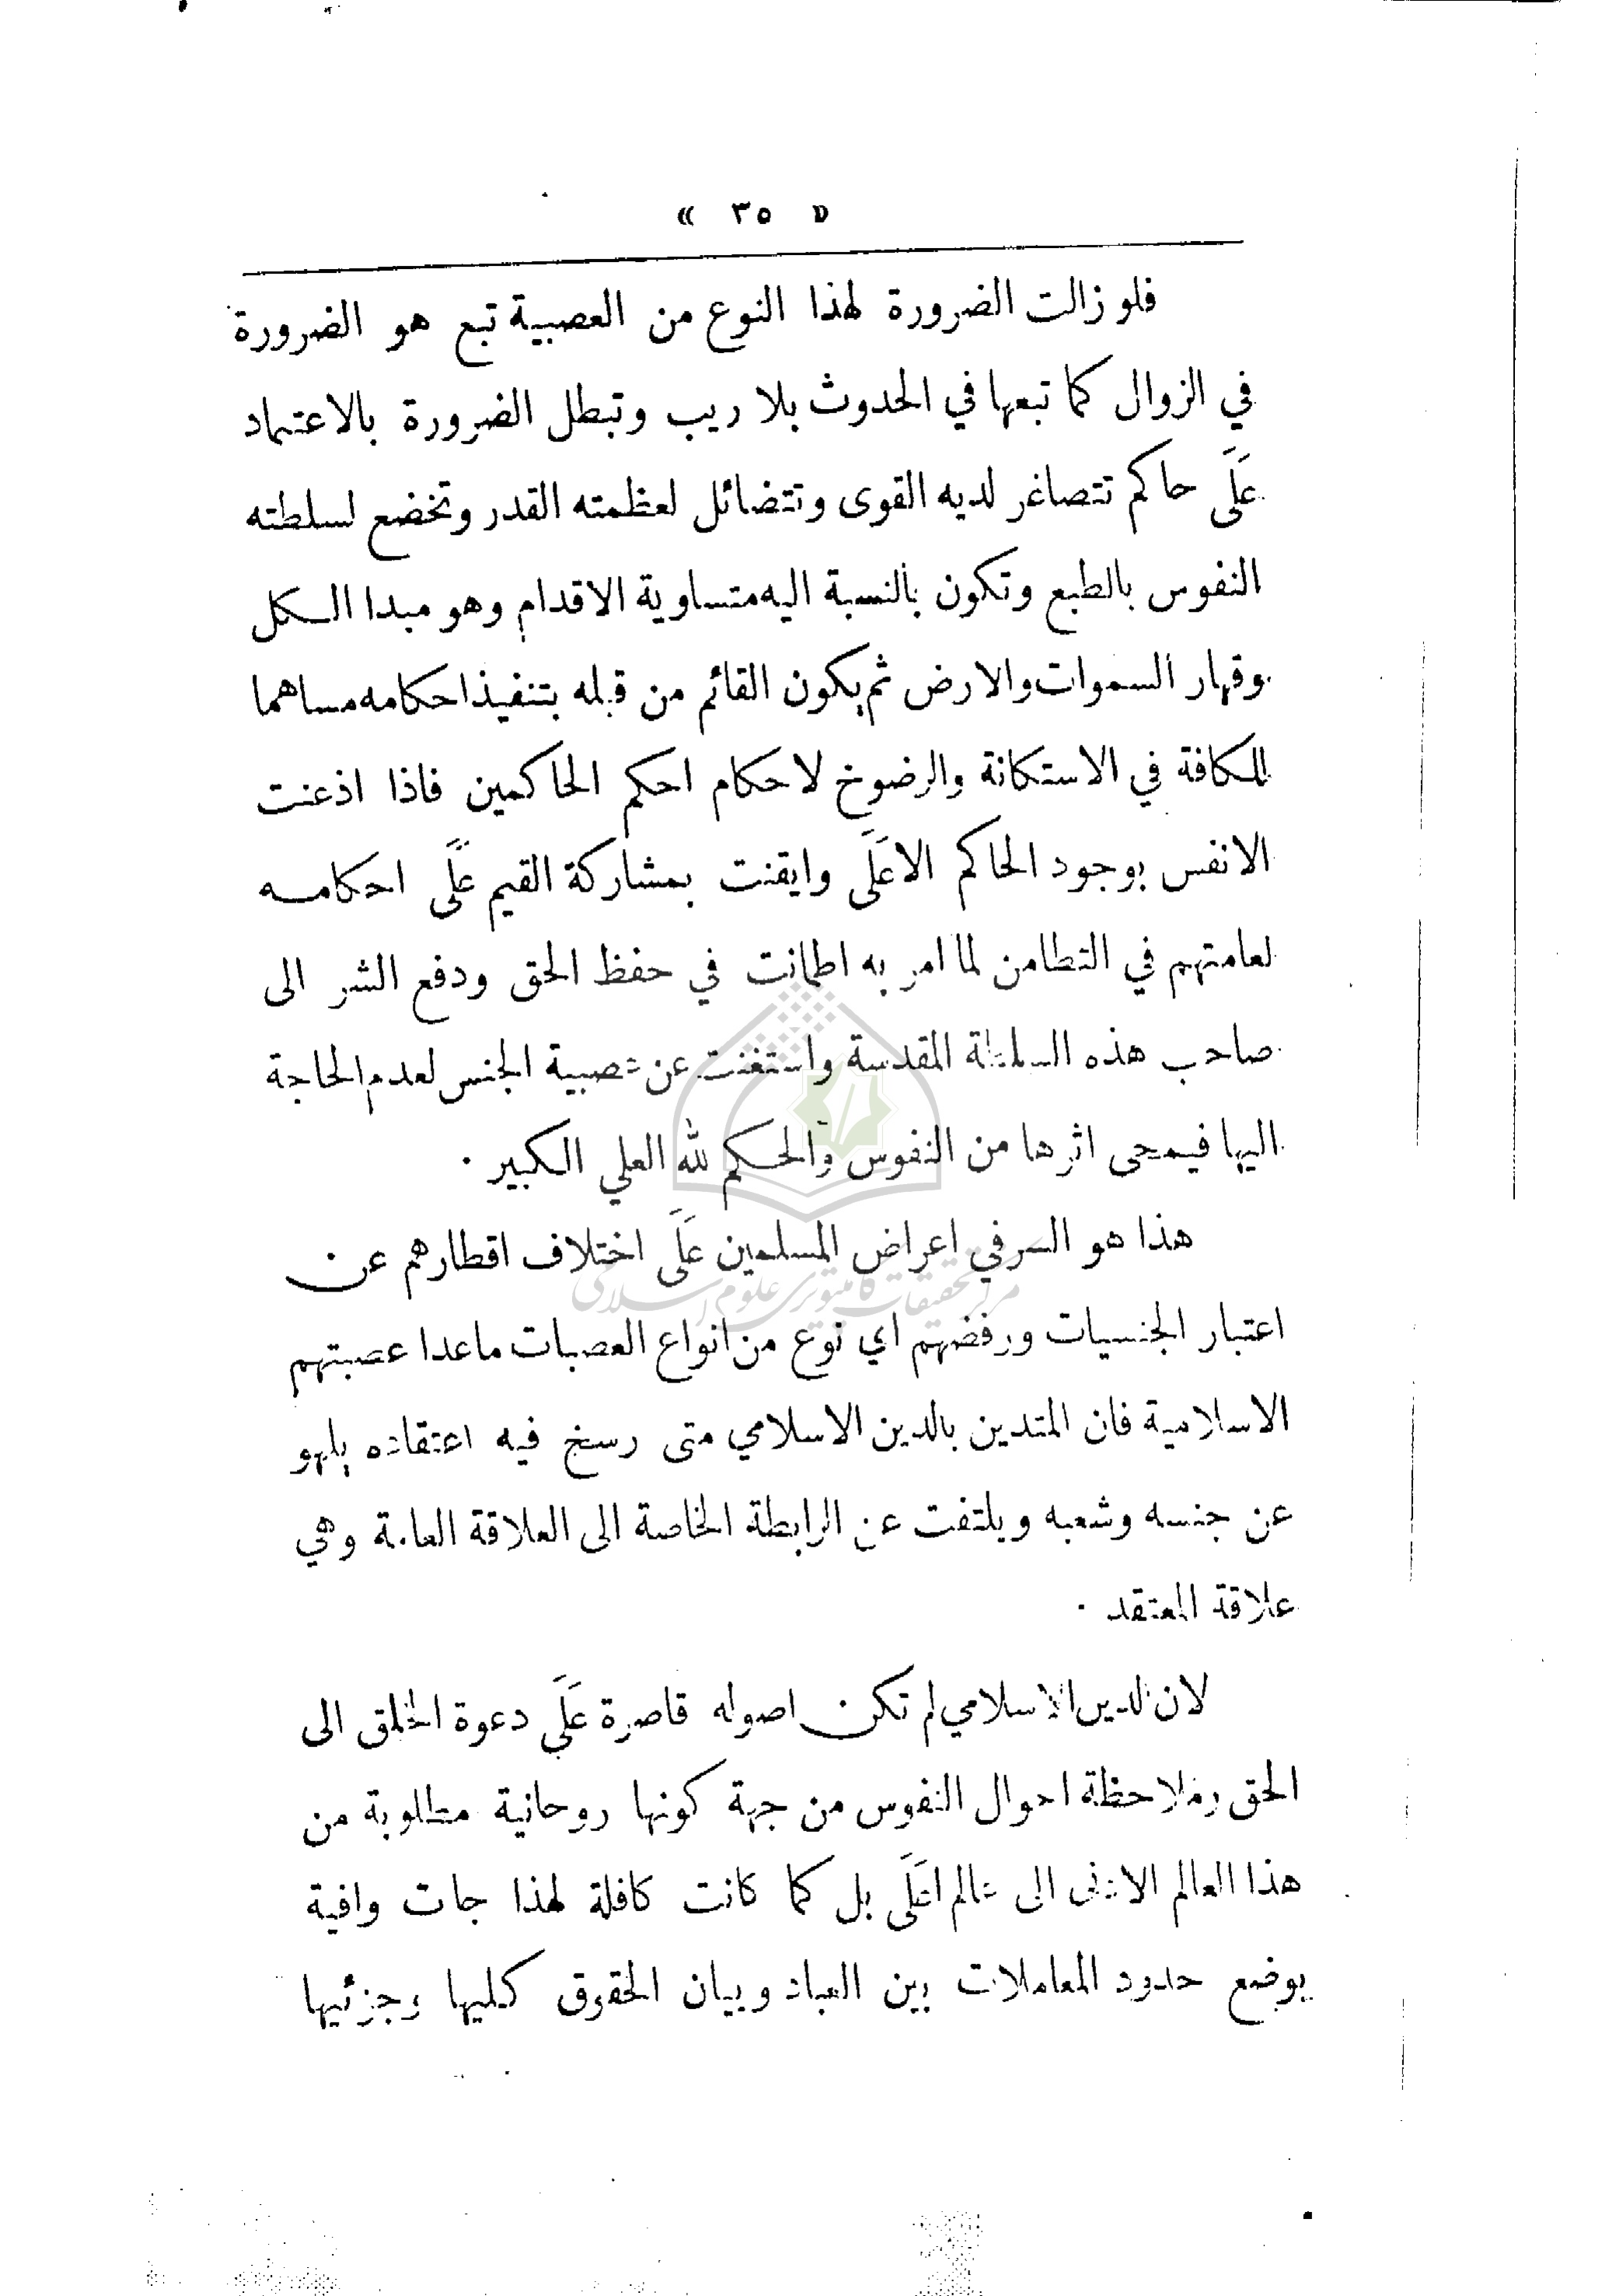 « ٣٥ »
فلو زالت الضرورة لهذا النوع من العصبية تبع هو الضرورة
في الزوال كما تبعها في الحدوث بلا ريب وتبطل الضرورة بالاعتماد
عَلَى حاكم تتصاغر لديه القوى وتتضائل لعظمته القدر وتخضع لسلطته
النفوس بالطبع وتكون بالنسبة اليه متساوية الاقدام وهو مبدا الكل
وقهار السموات والارض ثم يكون القائم من قبله بتنفيذ احكامه مساهما
للكافة في الاستكانة والرضوخ لاحكام احكم الحاكمين فاذا اذعنت
الانفس بوجود الحاكم الاعَلَى وايقنت بمشاركة القيم عَلَى احكامه
لعامتهم في التطامن لما امر به اطمانت في حفظ الحق ودفع الشر الى
صاحب هذه السلطة المقدسة واستغنت عن عصبية الجنس لعدم الحاجة
اليها فيمحى اثرها من النفوس والحكم لله العلي الكبير ٠
هذا هو السر في اعراض المسلمين عَلَى اختلاف اقطارهم عن
مركز تحقيقات كامپيوتري علوم اسلامي
اعتبار الجنسيات ورفضهم اي نوع من انواع العصبات ماعدا عصبتهم
الاسلامية فان المتدين بالدين الاسلامي متى رسخ فيه اعتقاده يلهو
عن جنسه وشعبه ويلتفت عن الرابطة الخاصة الى العلاقة العامة وهي
علاقة المعتقد ٠
لان الدين الاسلامي لم تكن اصوله قاصرة عَلَى دعوة الخلق الى
الحق وملاحظة احوال النفوس من جهة كونها روحانية مطلوبة من
هذا العالم الادنى الى عالم اعَلَى بل كما كانت كافلة لهذا جات وافية
بوضع حدود المعاملات بين العباد وبيان الحقوق كليها وجزئيها